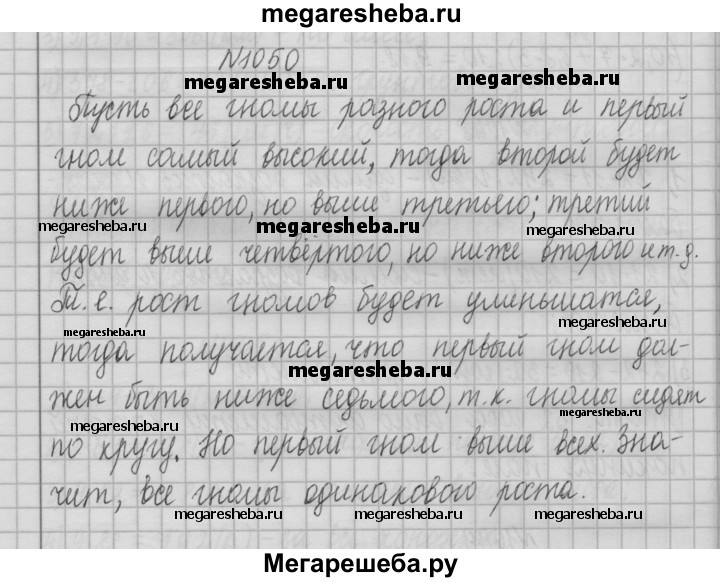 megaresheba.ru
N1050
megaresheba.ru megaresheba.ru
Пусть все гномы разного роста и первый
гном самый высокий, тогда второй будет
ниже первого, но выше третьего; третий
megaresheba.ru megaresheba.ru megaresheba.ru
будет выше четвёртого, но ниже второго и т.д.
Т.е. рост гномов будет уменьшатся,
megaresheba.ru megaresheba.ru
тогда получается, что первый гном дол-
megaresheba.ru
жен быть ниже седьмого, т.к. гномы сидят
megaresheba.ru megaresheba.ru
по кругу. Но первый гном выше всех. Зна-
чит, все гномы одинакового роста.
megaresheba.ru megaresheba.ru megaresheba.ru
Мегарешеба.ру